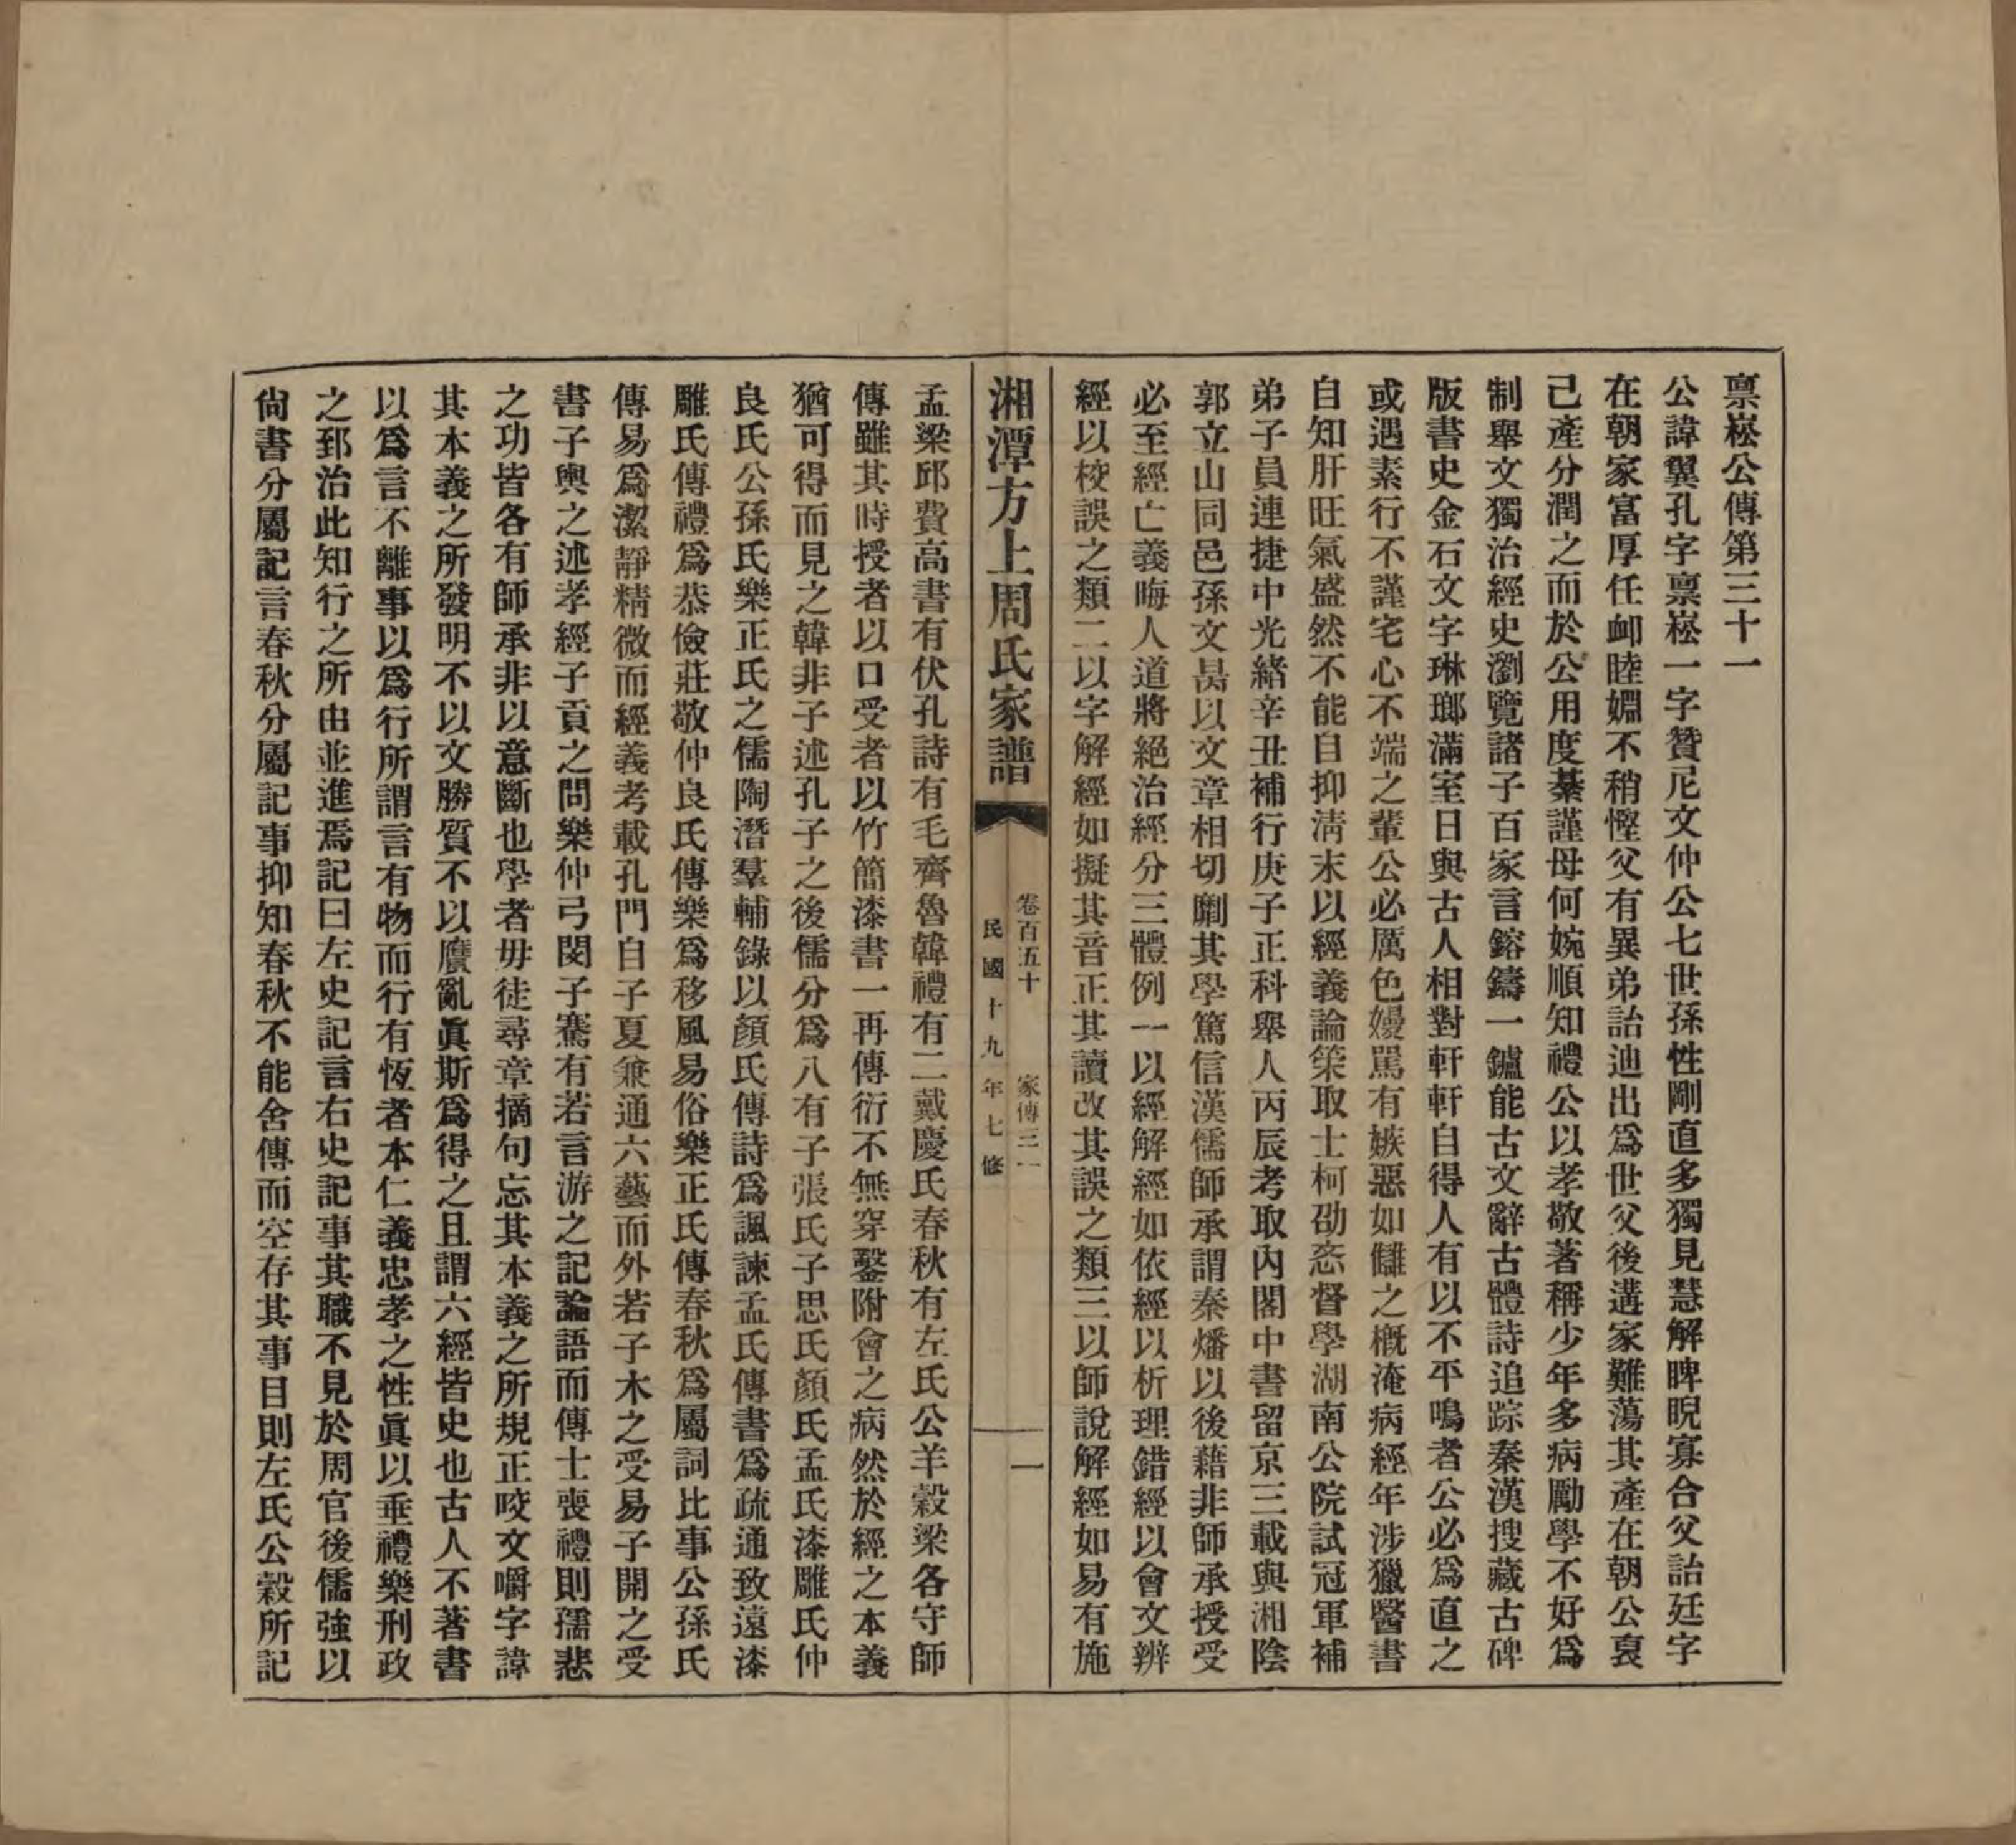 禀崧公傳第三十一
公諱翼孔字禀崧一字贊尼文仲公七世孫性剛直多獨見慧解睥睨寡合父詒廷字
在朝家富厚任卹睦婣不稍慳父有異弟詒迪出爲世父後遘家難蕩其產在朝公哀
己產分潤之而於公用度綦謹母何婉順知禮公以孝敬著稱少年多病勵學不好爲
制舉文獨治經史瀏覽諸子百家言鎔鑄一鑪能古文辭古體詩追踪秦漢搜藏古碑
版書史金石文字琳瑯滿室日與古人相對軒軒自得人有以不平鳴者公必爲直之
或遇素行不謹宅心不端之輩公必厲色嫚駡有嫉惡如讎之槪淹病經年涉獵醫書
自知肝旺氣盛然不能自抑淸末以經義論策取士柯劭忞督學湖南公院試冠軍補
弟子員連捷中光緒辛丑補行庚子正科舉人丙辰考取內閣中書留京三載與湘陰
郭立山同邑孫文昺以文章相切劘其學篤信漢儒師承謂秦燔以後藉非師承授受
必至經亡義晦人道將絕治經分三體例一以經解經如依經以析理錯經以會文辨
經以校誤之類二以字解經如擬其音正其讀改其誤之類三以師說解經如易有施
湘潭方上周氏家譜
卷百五十 家傳三一
民國十九年七修
一
孟梁邱費高書有伏孔詩有毛齊魯韓禮有二戴慶氏春秋有左氏公羊穀梁各守師
傳雖其時授者以口受者以竹簡漆書一再傳衍不無穿鑿附會之病然於經之本義
猶可得而見之韓非子述孔子之後儒分爲八有子張氏子思氏顏氏孟氏漆雕氏仲
良氏公孫氏樂正氏之儒陶潛羣輔錄以顏氏傳詩爲諷諫孟氏傳書爲疏通致遠漆
雕氏傳禮爲恭儉莊敬仲良氏傳樂爲移風易俗樂正氏傳春秋爲屬詞比事公孫氏
傳易爲潔靜精微而經義考載孔門自子夏兼通六藝而外若子木之受易子開之受
書子輿之述孝經子貢之問樂仲弓閔子騫有若言游之記論語而傳士喪禮則孺悲
之功皆各有師承非以意斷也學者毋徒尋章摘句忘其本義之所規正咬文嚼字諱
其本義之所發明不以文勝質不以贋亂眞斯爲得之且謂六經皆史也古人不著書
以爲言不離事以爲行所謂言有物而行有恆者本仁義忠孝之性眞以垂禮樂刑政
之郅治此知行之所由並進焉記曰左史記言右史記事其職不見於周官後儒強以
尙書分屬記言春秋分屬記事抑知春秋不能舍傳而空存其事目則左氏公穀所記